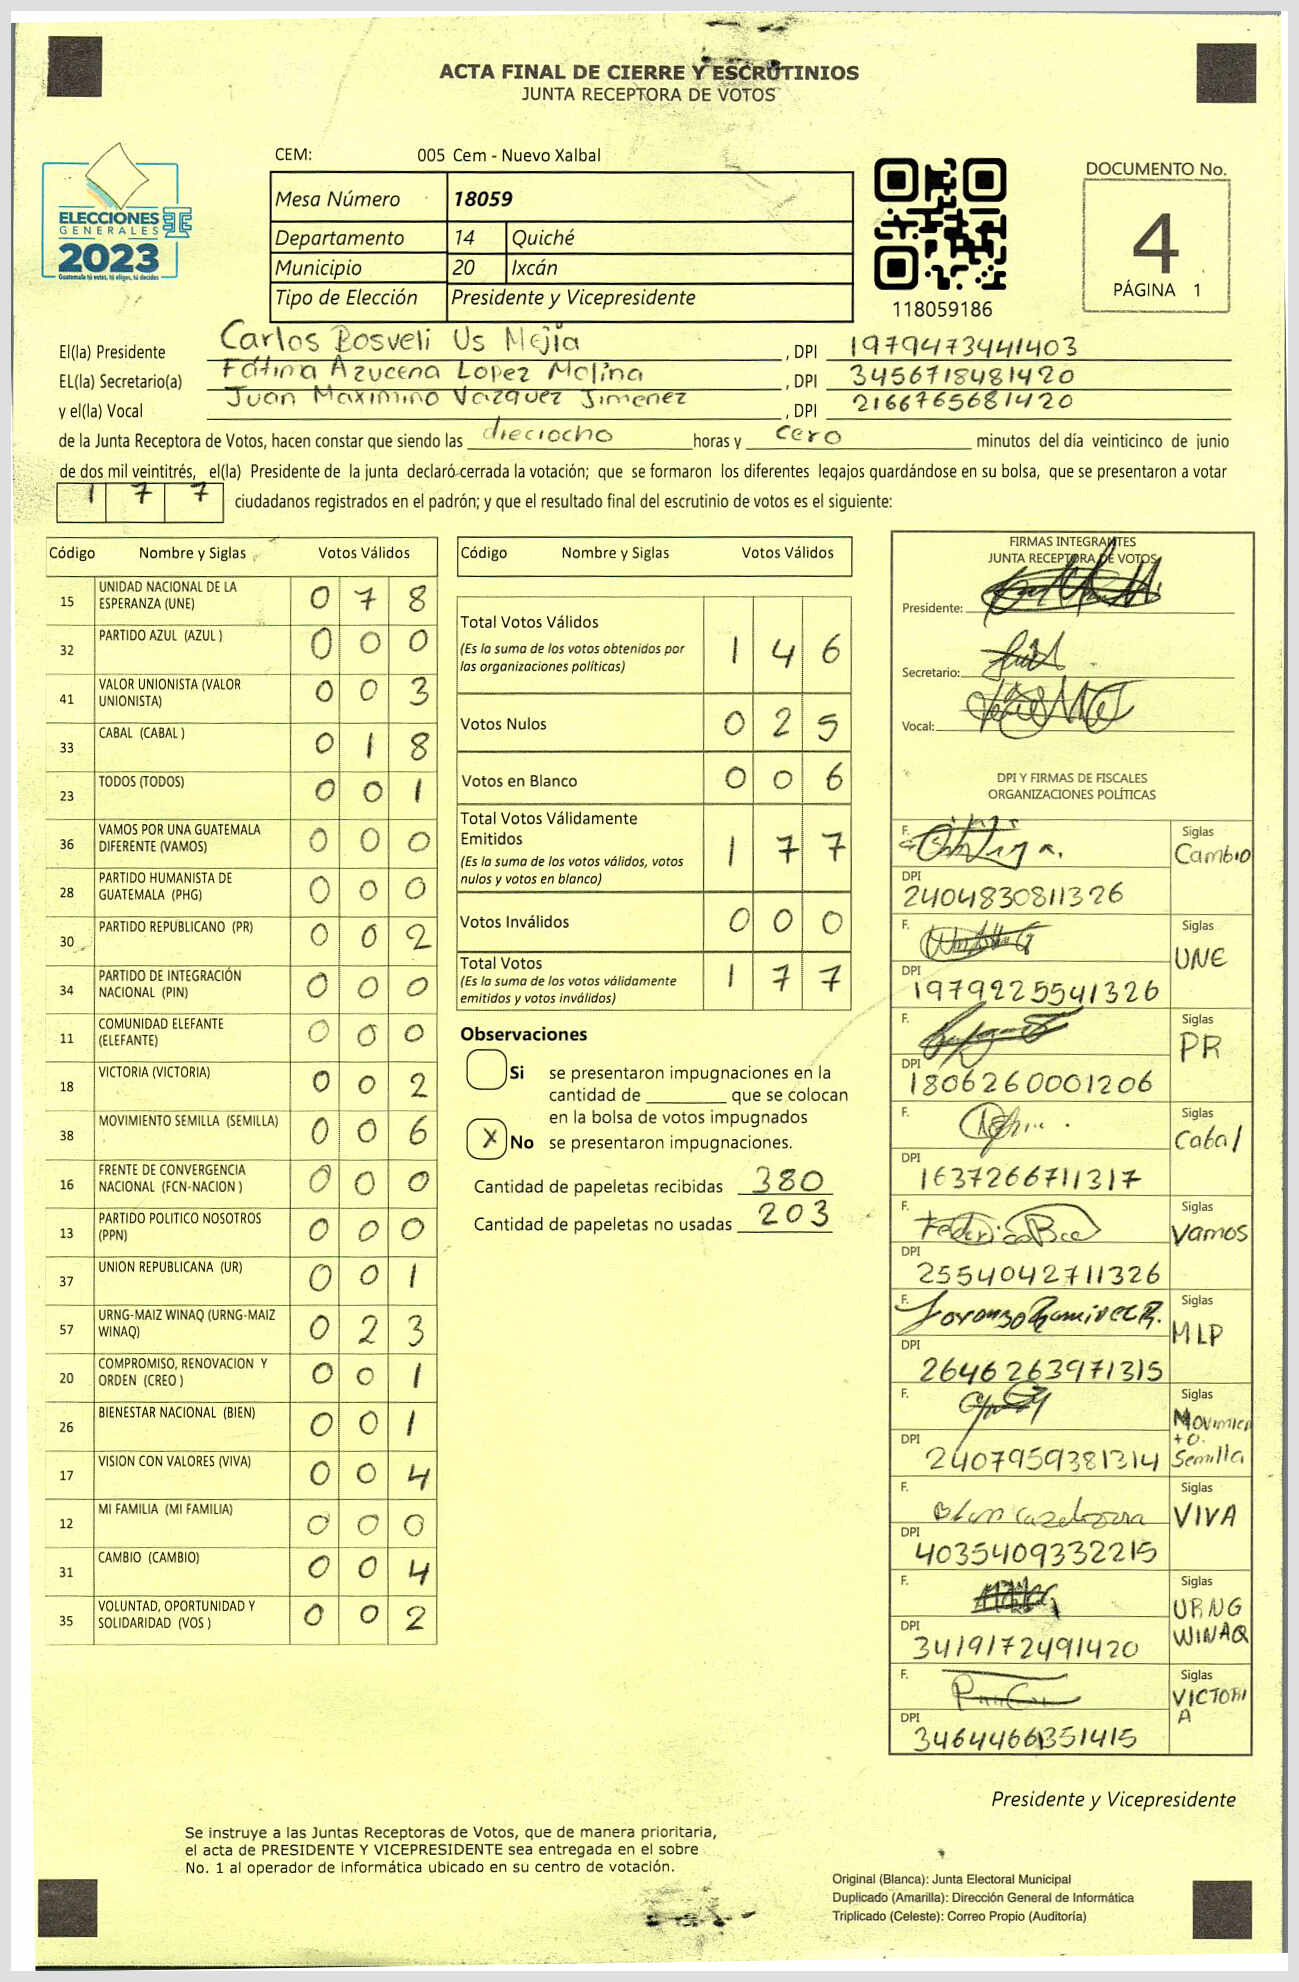 ACTA FINAL DE CIERRE Y ESCRUTINIOS
JUNTA RECEPTORA DE VOTOS
CEM: 005 Cem - Nuevo Xalbal
ELECCIONES
GENERALES
2023
Guatemala tú votas, tú eliges, tú decides
Mesa Número 18059
Departamento 14 Quiché
Municipio 20 Ixcán
Tipo de Elección Presidente y Vicepresidente
118059186
DOCUMENTO No.
4
PÁGINA 1
El(la) Presidente Carlos Bosveli Us Mejia , DPI 1979473441403
EL(la) Secretario(a) Fátima Azucena Lopez Molina , DPI 3456718481420
y el(la) Vocal Juan Maximino Vazquez Jimenez , DPI 2166765681420
de la Junta Receptora de Votos, hacen constar que siendo las dieciocho horas y cero minutos del día veinticinco de junio
de dos mil veintitrés, el(la) Presidente de la junta declaró cerrada la votación; que se formaron los diferentes legajos guardándose en su bolsa, que se presentaron a votar
1 7 7 ciudadanos registrados en el padrón; y que el resultado final del escrutinio de votos es el siguiente:
Código Nombre y Siglas Votos Válidos
15 UNIDAD NACIONAL DE LA ESPERANZA (UNE) 0 7 8
32 PARTIDO AZUL (AZUL ) 0 0 0
41 VALOR UNIONISTA (VALOR UNIONISTA) 0 0 3
33 CABAL (CABAL ) 0 1 8
23 TODOS (TODOS) 0 0 1
36 VAMOS POR UNA GUATEMALA DIFERENTE (VAMOS) 0 0 0
28 PARTIDO HUMANISTA DE GUATEMALA (PHG) 0 0 0
30 PARTIDO REPUBLICANO (PR) 0 0 2
34 PARTIDO DE INTEGRACIÓN NACIONAL (PIN) 0 0 0
11 COMUNIDAD ELEFANTE (ELEFANTE) 0 0 0
18 VICTORIA (VICTORIA) 0 0 2
38 MOVIMIENTO SEMILLA (SEMILLA) 0 0 6
16 FRENTE DE CONVERGENCIA NACIONAL (FCN-NACION ) 0 0 0
13 PARTIDO POLITICO NOSOTROS (PPN) 0 0 0
37 UNION REPUBLICANA (UR) 0 0 1
57 URNG-MAIZ WINAQ (URNG-MAIZ WINAQ) 0 2 3
20 COMPROMISO, RENOVACION Y ORDEN (CREO ) 0 0 1
26 BIENESTAR NACIONAL (BIEN) 0 0 1
17 VISION CON VALORES (VIVA) 0 0 4
12 MI FAMILIA (MI FAMILIA) 0 0 0
31 CAMBIO (CAMBIO) 0 0 4
35 VOLUNTAD, OPORTUNIDAD Y SOLIDARIDAD (VOS ) 0 0 2
Código Nombre y Siglas Votos Válidos
Total Votos Válidos 1 4 6
(Es la suma de los votos obtenidos por
las organizaciones políticas)
Votos Nulos 0 2 5
Votos en Blanco 0 0 6
Total Votos Válidamente
Emitidos 1 7 7
(Es la suma de los votos válidos, votos
nulos y votos en blanco)
Votos Inválidos 0 0 0
Total Votos 1 7 7
(Es la suma de los votos válidamente
emitidos y votos inválidos)
Observaciones
Si se presentaron impugnaciones en la
cantidad de ________ que se colocan
en la bolsa de votos impugnados
X No se presentaron impugnaciones.
Cantidad de papeletas recibidas 380
Cantidad de papeletas no usadas 203
FIRMAS INTEGRANTES
JUNTA RECEPTORA DE VOTOS
Presidente:
Secretario:
Vocal:
DPI Y FIRMAS DE FISCALES
ORGANIZACIONES POLÍTICAS
F. Siglas Cambio
DPI 2404830811326
F. Siglas UNE
DPI 1979225541326
F. Siglas PR
DPI 1806260001206
F. Siglas Cabal
DPI 1637266711317
F. Siglas Vamos
DPI 2554042711326
F. Lorenzo Ramirez R. Siglas MLP
DPI 2646263971315
F. Siglas Movimiento Semilla
DPI 2407959381314
F. Siglas VIVA
DPI 4035409332215
F. Siglas URNG WINAQ
DPI 3419172491420
F. Siglas VICTORIA
DPI 3464466351415
Presidente y Vicepresidente
Se instruye a las Juntas Receptoras de Votos, que de manera prioritaria,
el acta de PRESIDENTE Y VICEPRESIDENTE sea entregada en el sobre
No. 1 al operador de informática ubicado en su centro de votación.
Original (Blanca): Junta Electoral Municipal
Duplicado (Amarilla): Dirección General de Informática
Triplicado (Celeste): Correo Propio (Auditoría)